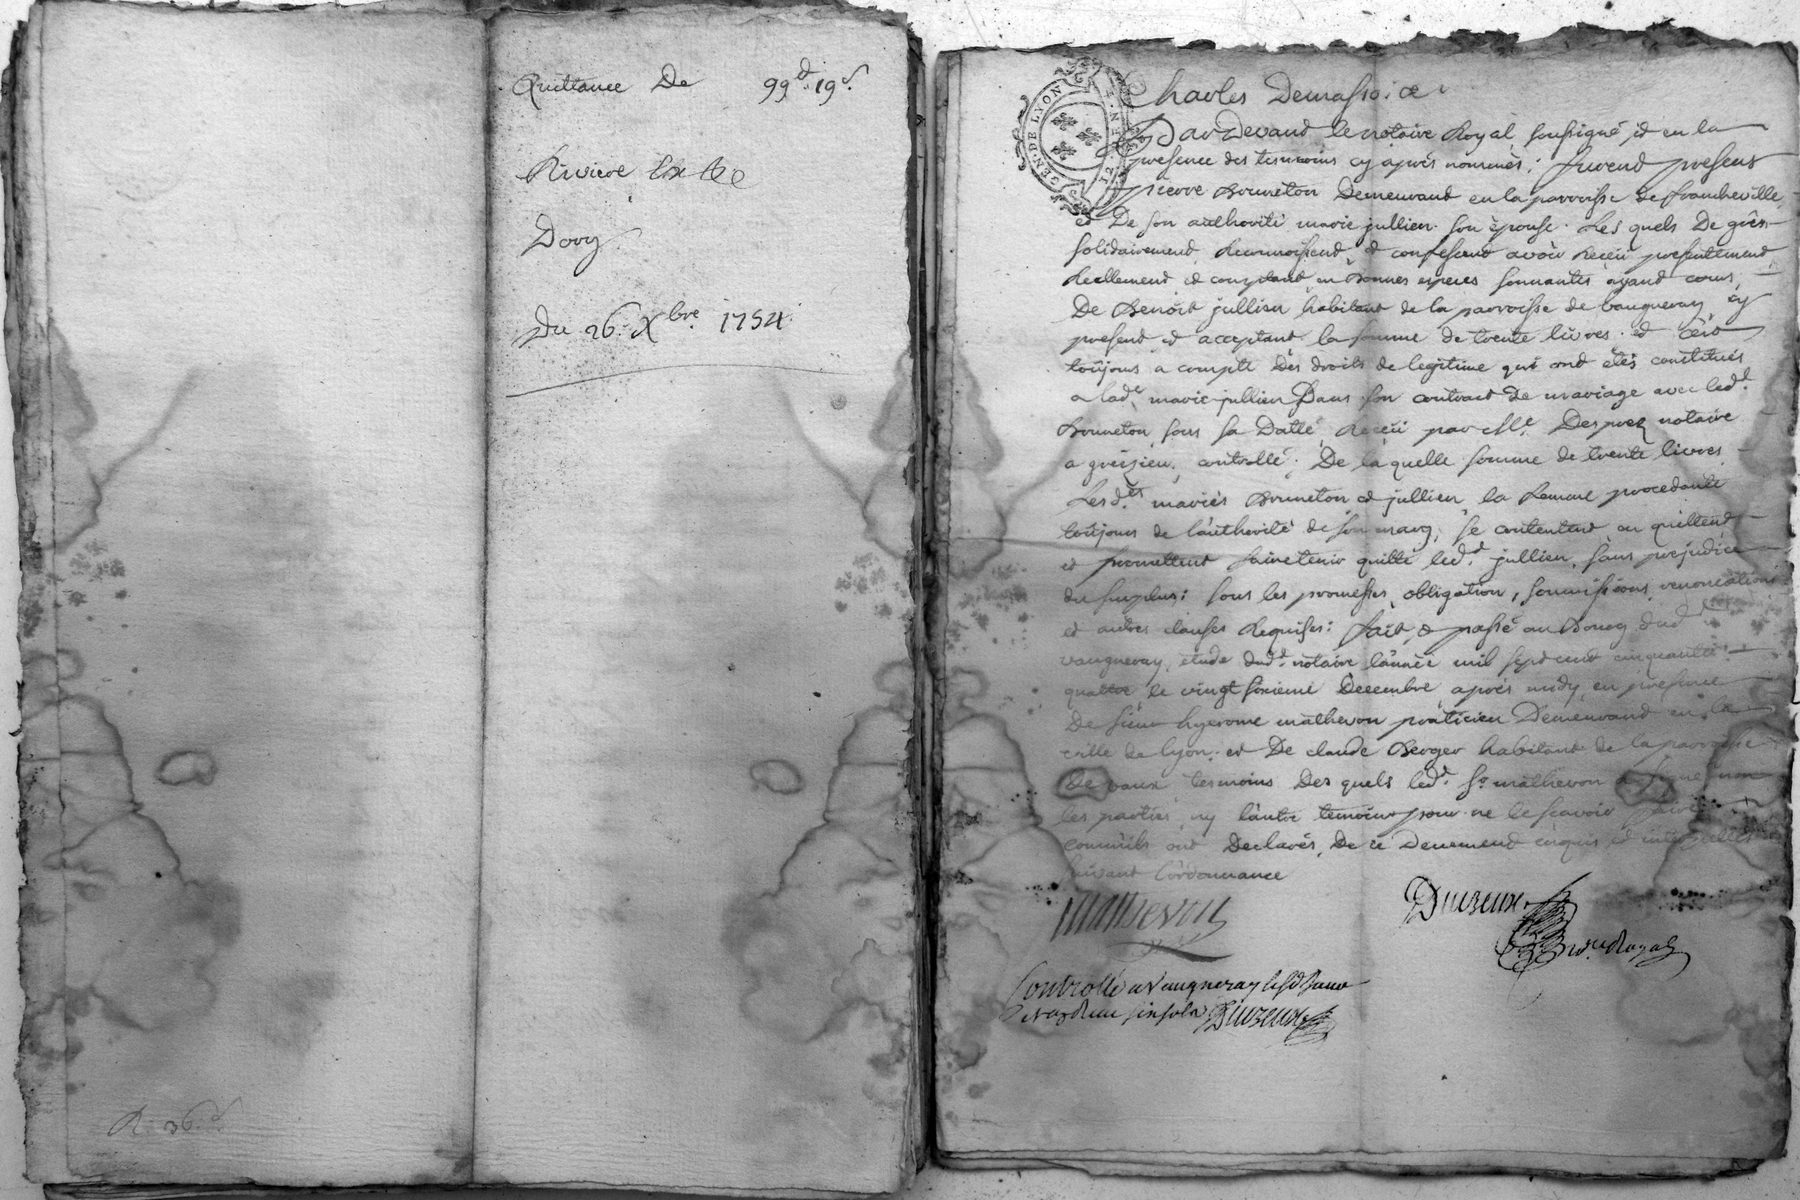 Quittance De 99# 19s.
Riviere
Dory
Du 26: Xbre 1754
R. 36s.
GEN. DE LYON
Charles Demasso: &
Pardevand le notaire Royal soussigné et en la
presence des temoins cy après nommés; furend presens
pierre Bruneton Demeurand en la parroisse de francheville,
et De son authorité marie jullien son épouse. Les quels De gré
solidairement Reconnoissend et confessend avoir Reçeu presentement
Reellement et comptant en Bonnes especes sonnantes ayand cours
De Benoit jullien habitant de la parroisse de vaugneray cy
present et acceptant la somme de trente livres. et c'est
toûjours a compte Des droits de legitime qui ont étés constitués
a lad.e marie jullien Dans son contract de mariage avec led.t
Bruneton sous sa Datte, Reçeü par Me. Desprez notaire
a greizieu, controllé. De laquelle somme de trente livres
Lesd.ts mariés Bruneton et jullien la femme procedante
toûjours de l'authorité de son mary, se contentent en quittend
et promettent faire tenir quitte led.t jullien, sans prejudice
du surplus: sous les promesses, obligation, soumissions renonciations
et autres clauses Requises: fait & passé au Bourg dud.
vaugneray, étude dud.t notaire l'année mil sept cent cinquante
quattre le vingt sixieme Decembre après midy, en presence
De sieur hyerome mathevon praticien Demeurand en la
ville de lyon: et De claude Berger habitant de la parroisse
De vaux temoins Des quels led.t Sr. mathevon a signé non
les parties ny l'autre temoin pour ne le scavoir faire
comm'ils ont Declarés, De ce Deuement enquis et interpellés
suivant l'ordonnance
Mathevon
Duizeux
no.re Royal
Controllé a Vaugneray le
Reçu Duizeux